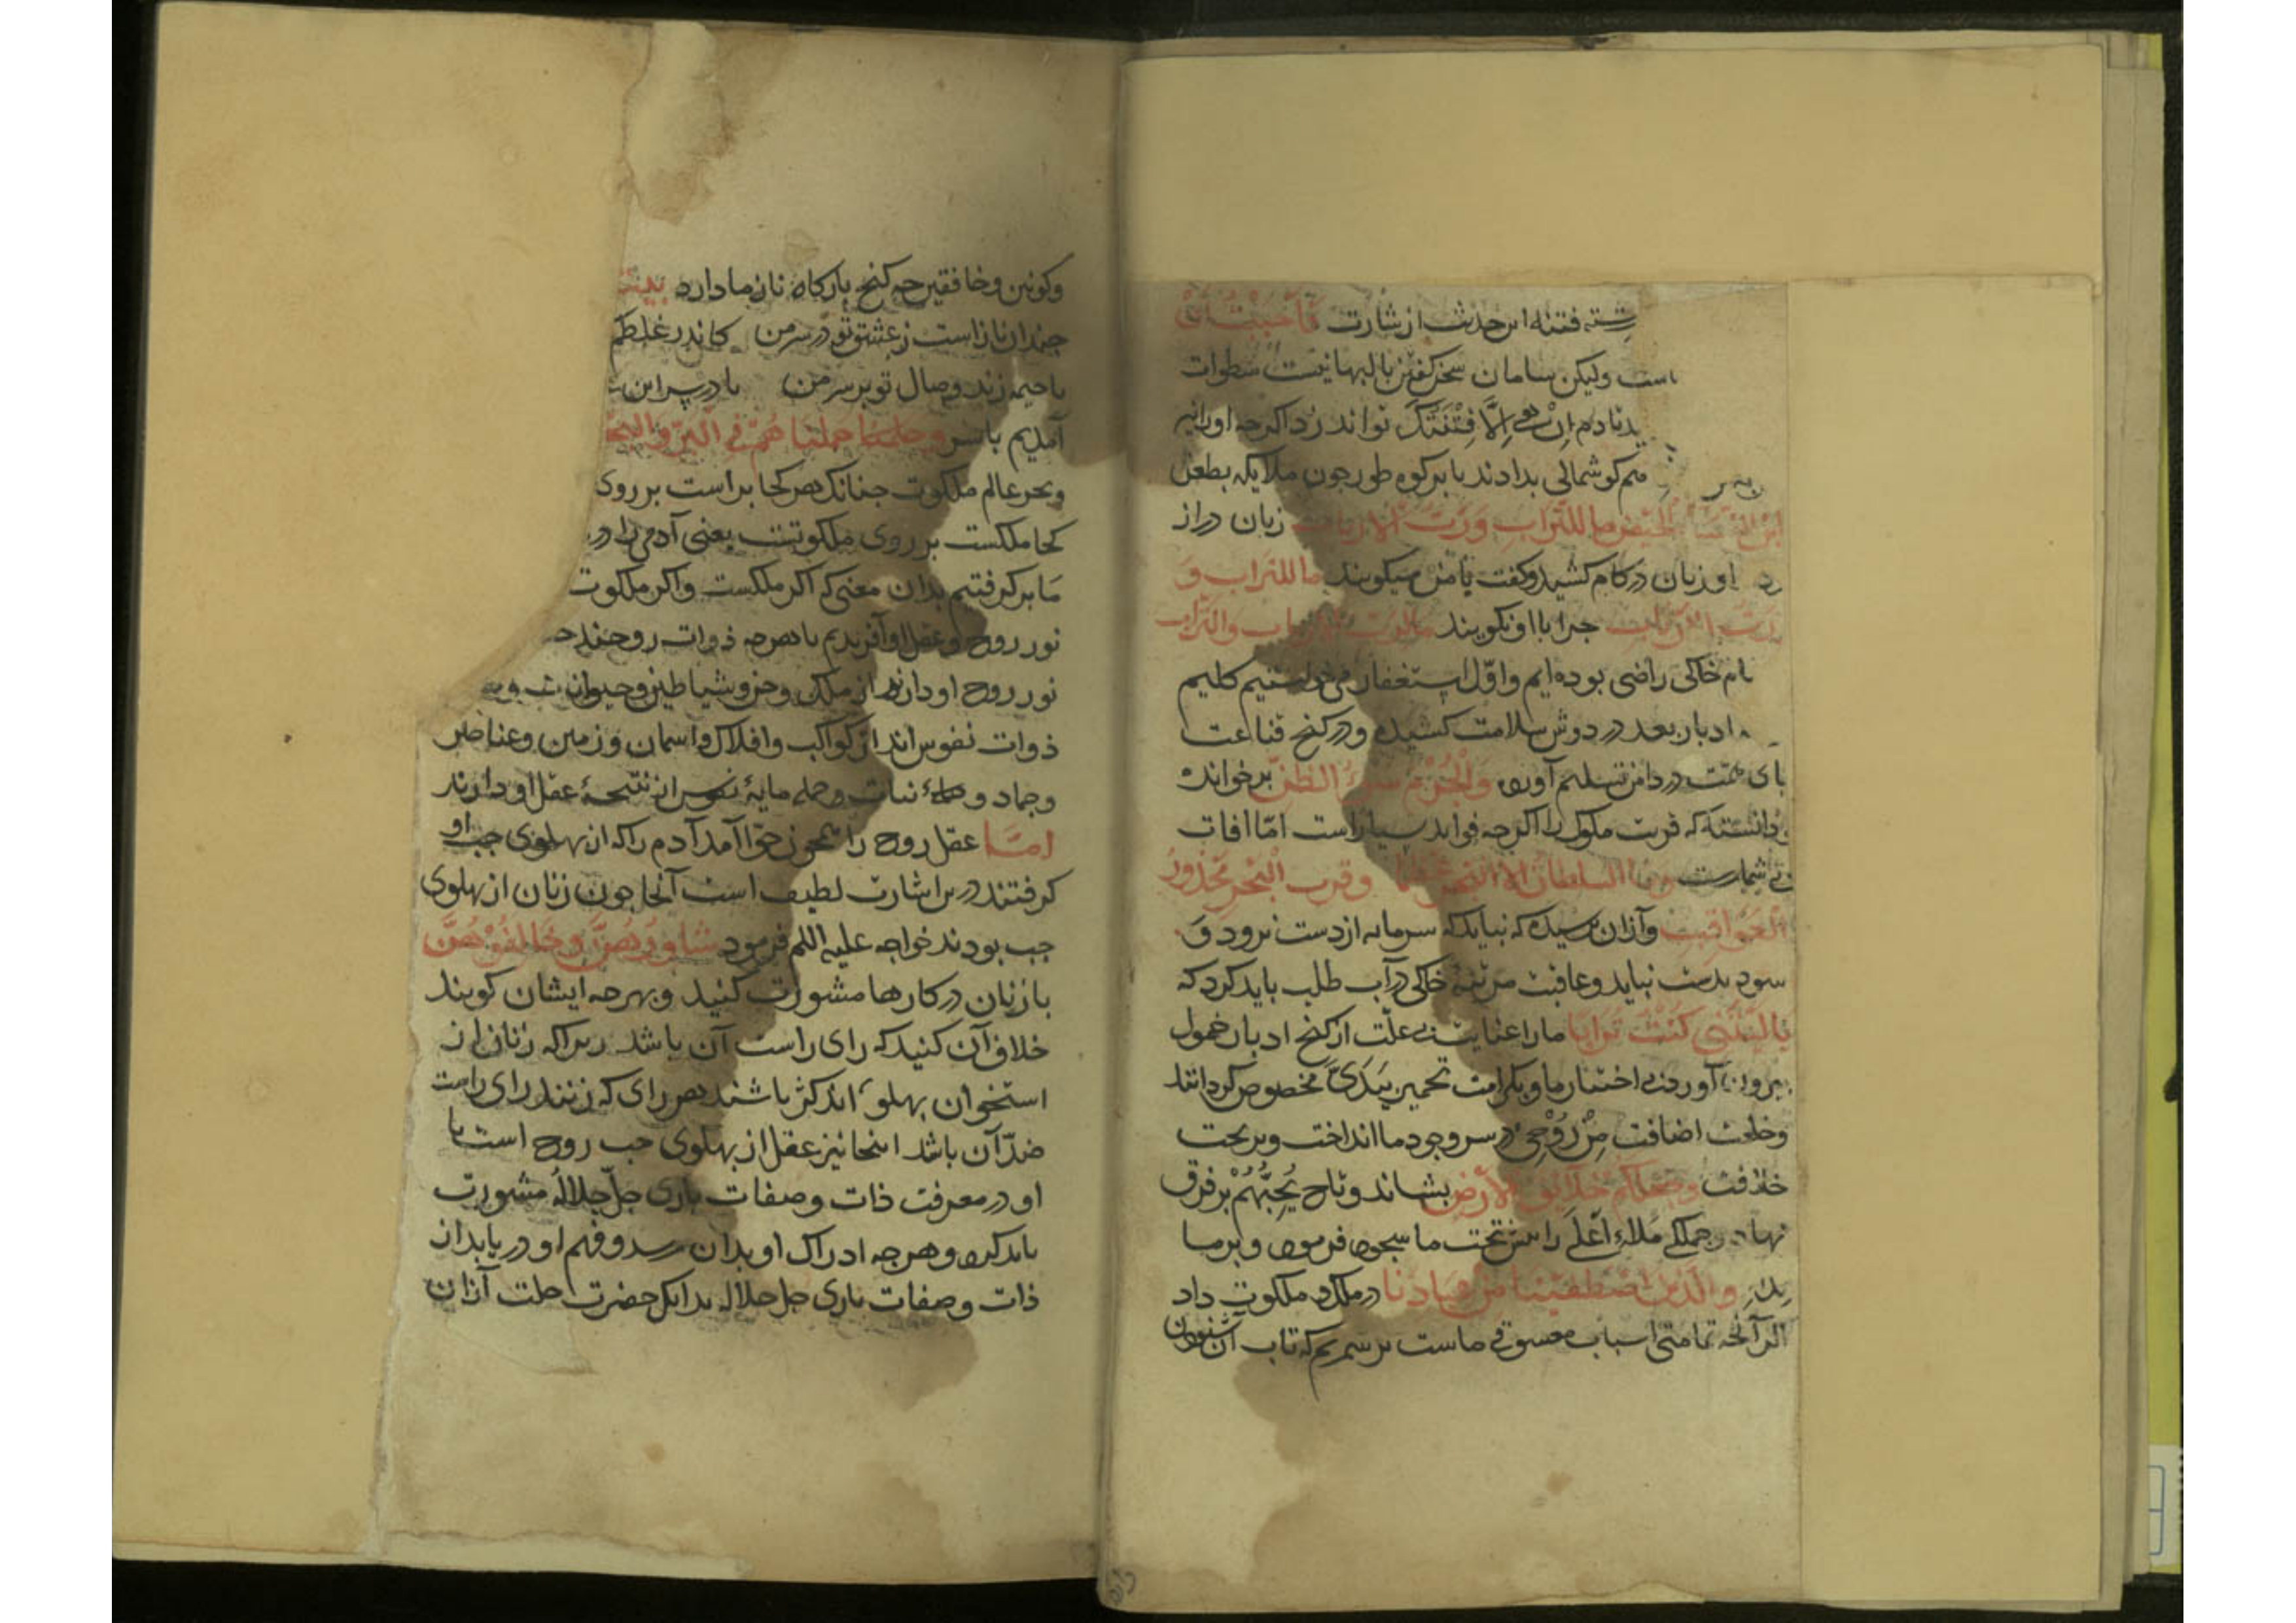 فتنه این حدیث از شارت فاحببت ان
است ولیکن سامان سخن گفتن با البها نیست سطوات
ان هی الا فتنتک تواند زد اگرچه او را نیز
هم گوشمالی بدادند تا بر کوه طور چون ملایکه بطعن
ما للتراب ورب الارباب زبان دراز
او زبان در کام کشید و گفت با من میگویند ما للتراب و
رب الارباب چرا با او نگویند ما لرب الارباب والتراب
خاکی راضی بوده ایم و اول استغفار می خواستیم گلیم
ادبار بعد در دوش سلامت کشیده و در کنج قناعت
پای همت در دامن تسلیم آورده والحزم سوء الظن برخوانده
دانسته که قربت ملوک را اگرچه فواید بسیار است اما آفات
بی شمارست السلطان الا البحر وقرب البحر محذور
العواقب و از آن ترسیده که نباید که سرمایه از دست برود و
سود بدست نیاید و عاقبت مرتبه خاکی در آب طلب باید کرد که
یا لیتنی کنت ترابا ما را عنایت بی علت از کنج ادبار خمول
بیرون آورد بی اختیار ما و بکرامت تخمیر بیدی مخصوص گردانید
و خلعت اضافت من روحی در سر وجود ما انداخت و بر تخت
خلافت وجعلکم خلائف الارض بنشاند و تاج یحبهم بر فرق
نهاد و جملگی ملاء اعلی را پیش تخت ما سجود فرمود و بر ما
والذین اصطفینا من عبادنا در ملک و ملکوت داد
اگر آنچه تمامتی اسباب معشوقی ماست بر شمریم که تاب آن شنودن
و کونین و خافقین چه گنج بارگاه ناز ما دارد بیت
چندان نازست ز عشق تو در سر من کاندر غلطم
یا خیمه زند وصال تو بر سر من یا در سر این
آمدیم با سر وحملناهم فی البر والبحر
و بحر عالم ملکوت چنانک هر کجا براست بر روی
کجا ملکست بر روی ملکوتست یعنی آدمی را در
ما بر گرفتیم بدان معنی که اگر ملکست و اگر ملکوت
نور روح و عقل او آفریدیم با هرچه ذوات روحند
نور روح او دارند از ملک و جن و شیاطین و حیوانات
ذوات نفوس اند از کواکب و افلاک و آسمان و زمین و عناصر
و جماد و نبات و جمله مایه نفوس از نتیجه عقل او دارند
اما عقل روح را همچون حوا آمد آدم را که از پهلوی چپ او
گرفتند درین اشارت لطیف است آنجا چون زنان از پهلوی
چپ بودند خواجه علیه السلم فرمود شاوروهن وخالفوهن
با زنان در کارها مشورت کنید و بهرچه ایشان گویند
خلاف آن کنید که رای راست آن باشد زیرا که زنان از
استخوان پهلو اند کژ باشند هر رای که زنند رای راست
ضد آن باشد اینجا نیز عقل از پهلوی چپ روح است با
او در معرفت ذات و صفات باری جل جلاله مشورت
باید کرد و هرچه ادراک او بدان رسد و فهم او دریابد از
ذات و صفات باری جل جلاله بدانک حضرت جلت از آن